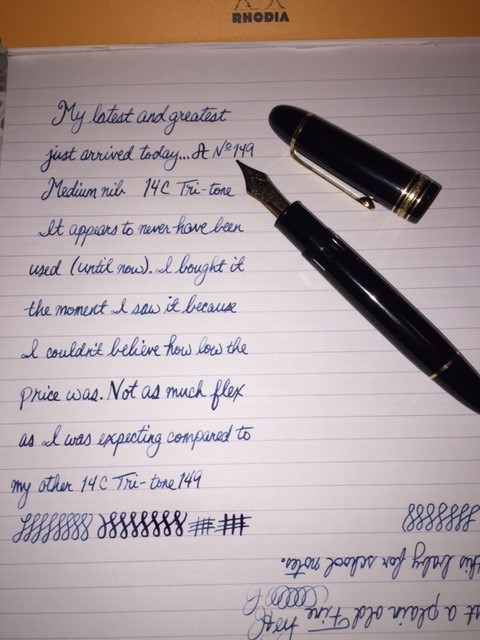 RHODIA
My latest and greatest
just arrived today... A Nº 149
Medium nib 14C Tri-tone
It appears to never have been
used (until now). I bought it
the moment I saw it because
I couldn't believe how low the
price was. Not as much flex
as I was expecting compared to
my other 14C Tri-tone 149
a plain old Fine
this baby for school notes.